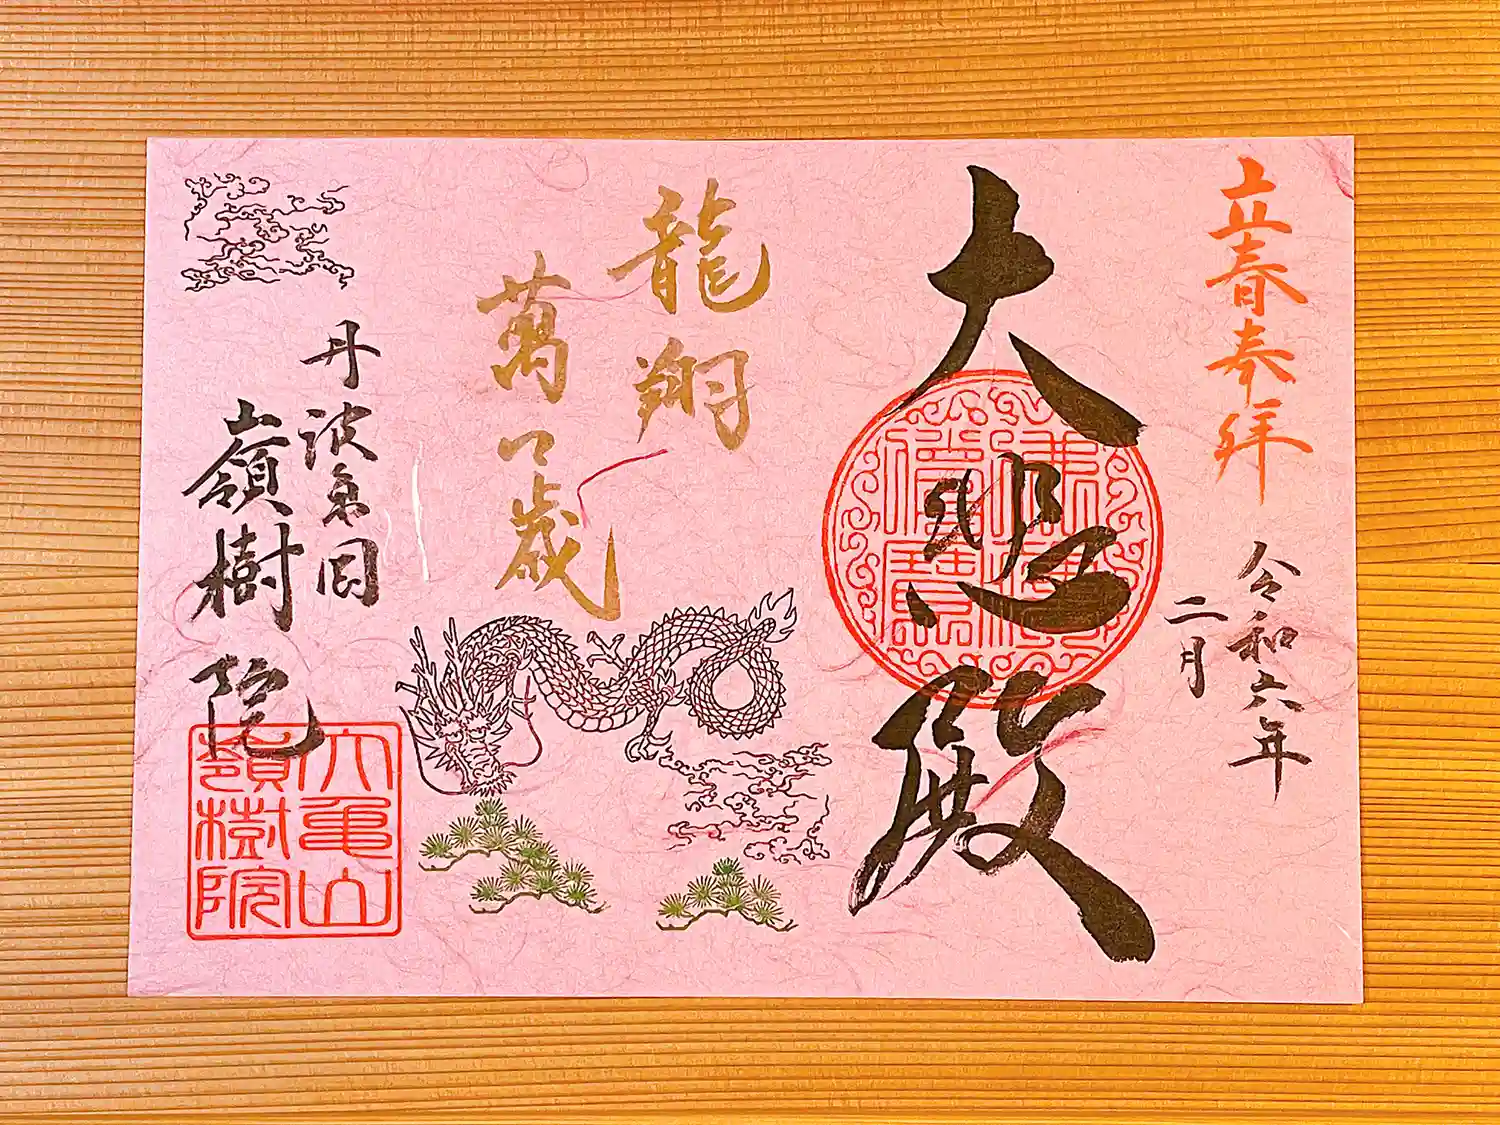 立春奉拝
令和六年
二月
大悲殿
佛法
僧寶
龍翔
萬々歳
丹波亀岡
嶺樹院
大亀山
嶺樹院